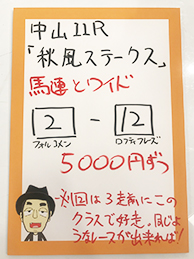 中山11R
「秋風ステークス」
馬連とワイド
2 - 12
フォルコメン ロフティフレーズ
5000円ずつ
※12は3走前にこの
クラスで好走。同じよ
うなレースが出来れば!